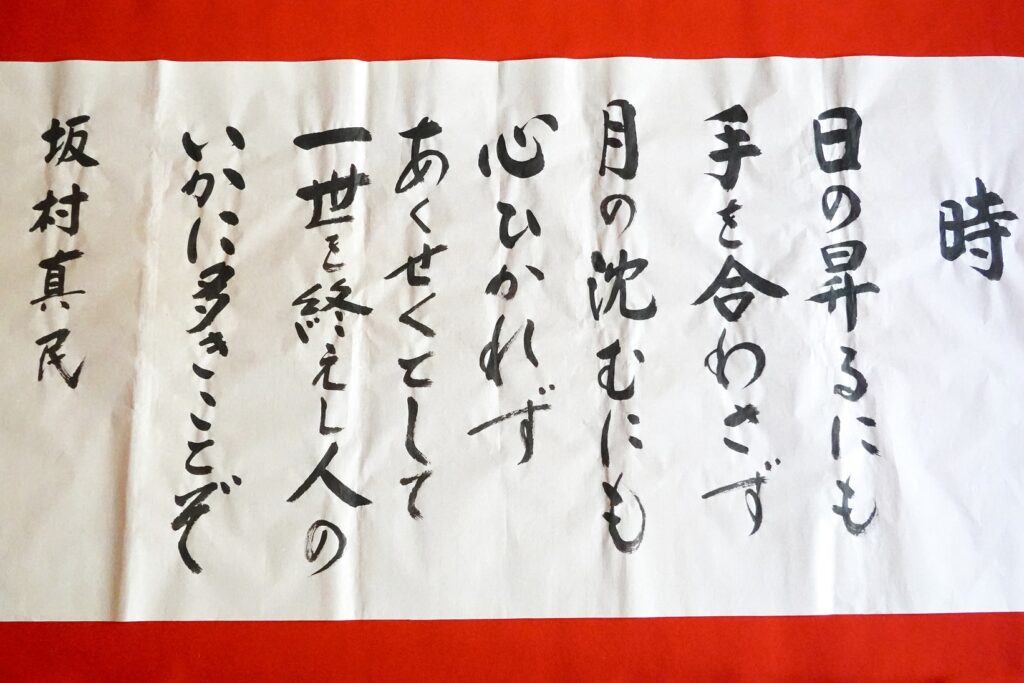 時
日の昇るにも
手を合わさず
月の沈むにも
心ひかれず
あくせくてして
一世を終えし人の
いかに多きことぞ
坂村真民